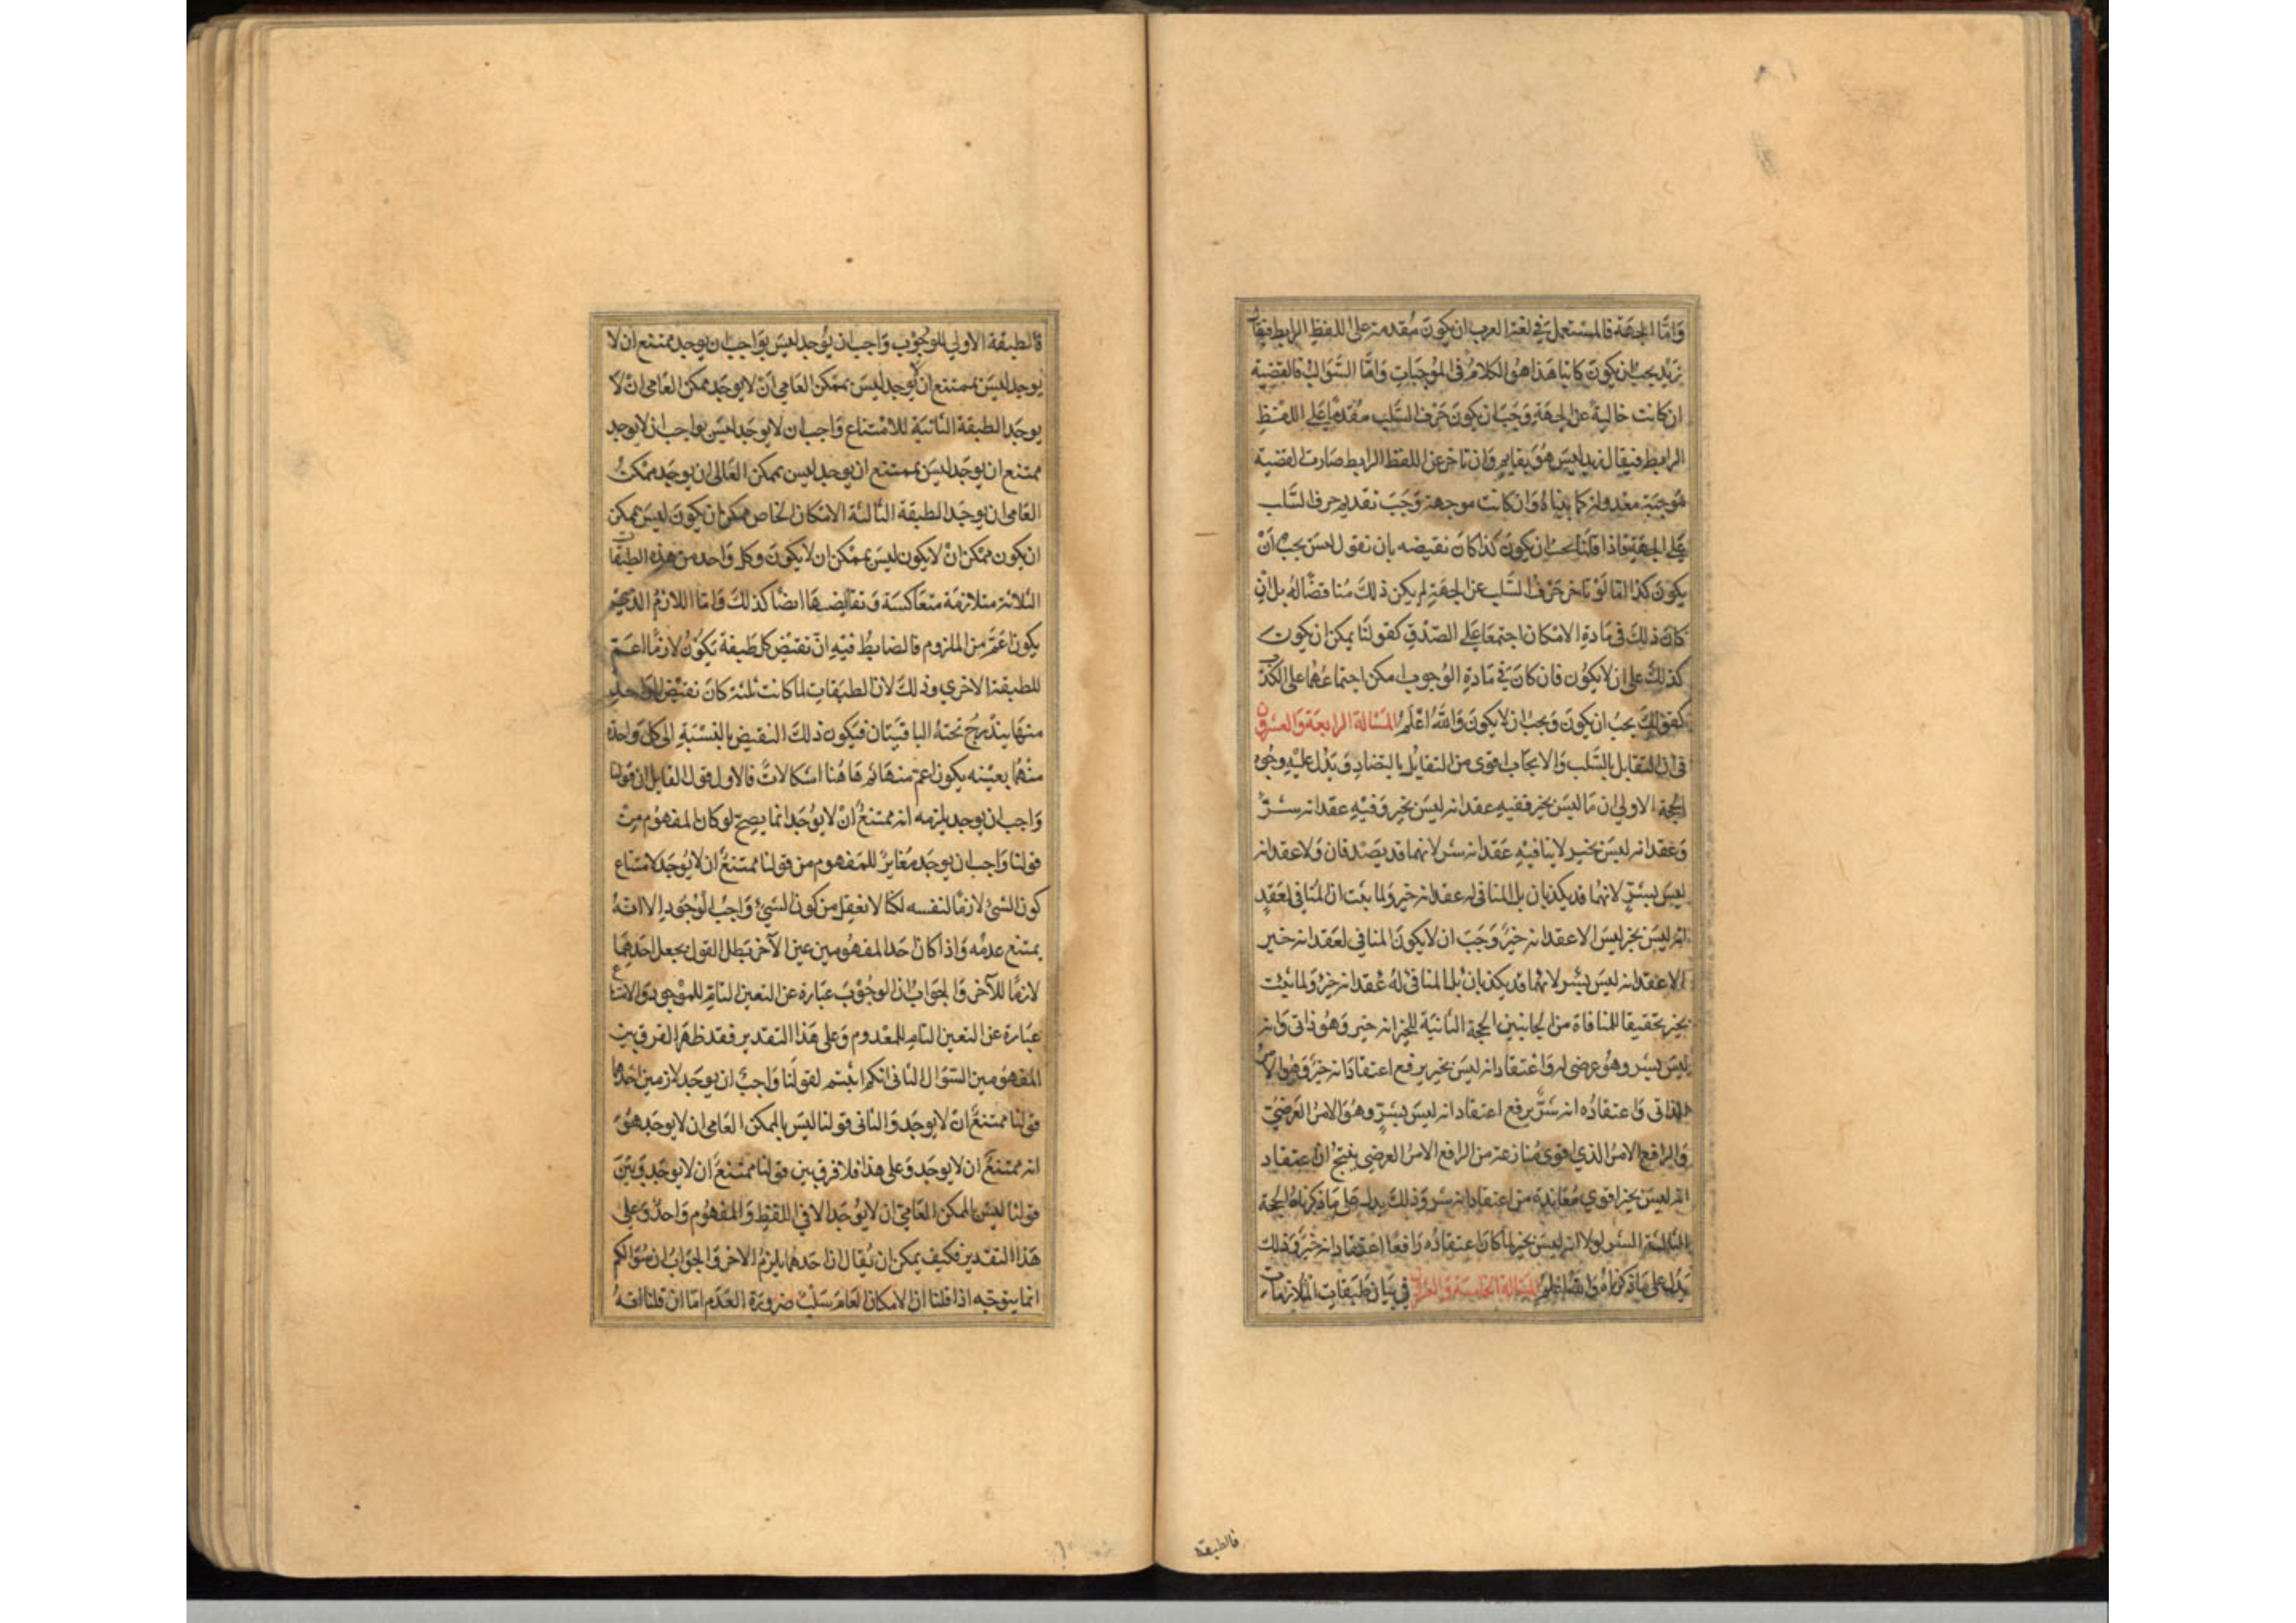 واما الجهة فالمستعمل في لغة العرب ان يكون مقدمة على اللفظ الرابط فيقال
زيد يجب ان يكون كاتبا هذا هو الكلام في الموجبات واما السوالب فالقضية
ان كانت خالية عن الجهة وجب ان يكون حرف السلب مقدما على اللفظ
الرابط فيقال زيد ليس هو بقايم وان تاخر عن اللفظ الرابط صارت القضية
موجبة معدولة كما بيناه وان كانت موجهة وجب تقديم حرف السلب
على الجهة فاذا قلنا يجب ان يكون كذا كان نقيضه بان نقول ليس يجب ان
يكون كذا اما لو تاخر حرف السلب عن الجهة لم يكن ذلك مناقضا له بل ان
كان ذلك في مادة الامكان اجتمعا على الصدق كقولنا يمكن ان يكون
كذلك على ان لا يكون فان كان في مادة الوجوب امكن اجتماعهما على الكذب
كقولك يجب ان يكون ويجب ان لا يكون والله اعلم المسالة الرابعة والعشرون
في ان التقابل بالسلب والايجاب اقوى من التقابل بالتضاد ويدل عليه وجوه
الحجة الاولى ان ما ليس بخير ففيه عقد انه ليس بخير وفيه عقد انه شر
وعقد انه ليس بخير لا ينافيه عقد انه شر لانهما قد يصدقان ولا عقد انه
ليس بشر لانهما قد يكذبان بل المنافى له عقد انه خير ولما بت ان المنافى لعقد
انه ليس بخير ليس الا عقد انه خير وجب ان لا يكون المنافي لعقد انه خير
الا عقد انه ليس بشر لانهما قد يكذبان بل المنافى له عقد انه خير ولما ليت
بخير تحقيقا للمنافاة من الجانبين الحجة الثانية للخير انه خير وهو ذاتى وانه
ليس بشر وهو عرضى له واعتقاد انه ليس بخير يرفع اعتقاد انه خير وهو الامر
الذاتى واعتقاده انه شر يرفع اعتقاد انه ليس بشر وهو الامر العرضي
والرافع الامر الذي اقوى منازعة من الرافع الامر العرضي ينتج ان اعتقاد
انه ليس بخير اقوي معاندة من اعتقاد انه شر وذلك يدل على ما ذكرناه الحجة
الثالثة الشر لولا انه ليس بخير لما كان اعتقاده رافعا اعتقاد انه خير وذلك
يدل على ما ذكرناه والله اعلم المسالة الخامسة والعشرون في بيان طبقات المتلازمات
فالطبقة
فالطبقة الاولي للوجوب واجب ان يوجد ليس بواجب ان يوجد ممتنع ان لا
يوجد ليس بممتنع ان لا يوجد ليس بممكن العامي ان لا يوجد ممكن العامى ان لا
يوجد الطبقة الثانية للامتناع واجب ان لا يوجد ليس بواجب ان لا يوجد
ممتنع ان يوجد ليس بممتنع ان يوجد ليس بممكن العالى ان يوجد ممكن
العامى ان يوجد الطبقة الثالثة الامكان الخاص ممكن ان يكون ليس بممكن
ان يكون ممكن ان لا يكون ليس بممكن ان لا يكون وكل واحد من هذه الطبقات
الثلاثة متلازمة متعاكسة ونقايضها ايضا كذلك واما اللازم الذي
يكون اعم من الملزوم فالضابط فيه ان نقيض كل طبقة تكون لازما اعم
للطبقة الاخري وذلك لان الطبقات لما كانت ثلثة كان نقيض كل واحد
منها يندرج تحته الباقيتان فيكون ذلك النقيض بالنسبة الى كل واحدة
منهما بعينه يكون اعم منها ثم هاهنا اشكالات فالاول قول القايل ان قولنا
واجب ان يوجد يلزمه انه ممتنع ان لا يوجد انما يصح لو كان المفهوم من
قولنا واجب ان يوجد مغايرا للمفهوم من قولنا ممتنع ان لا يوجد لامتناع
كون الشئ لازما لنفسه لكنا لا نعقل من كون الشيء واجب الوجود الا انه
يمتنع عدمه واذا كان احد المفهومين عين الآخر بطل القول بجعل احدهما
لازما للآخر والجواب ان الوجوب عبارة عن التعين التام للموجود والامتناع
عبارة عن التعين التام للمعدوم وعلى هذا التقدير فقد ظهر الفرق بين
المفهومين السؤال الثانى انكم اثبتم لقولنا واجب ان يوجد لازمين احدهما
قولنا ممتنع ان لا يوجد والثانى قولنا ليس بالممكن العامى ان لا يوجد هو
انه ممتنع ان لا يوجد وعلى هذا فلا فرق بين قولنا ممتنع ان لا يوجد وبين
قولنا ليس بالممكن العامي ان لا يوجد الا في اللفظ والمفهوم واحد وعلى
هذا التقدير فكيف يمكن ان يقال ان احدهما يلزم الاخر والجواب ان سؤالكم
انما يتوجه اذا قلنا ان الامكان العام سلب ضرورة العدم اما ان قلنا انه